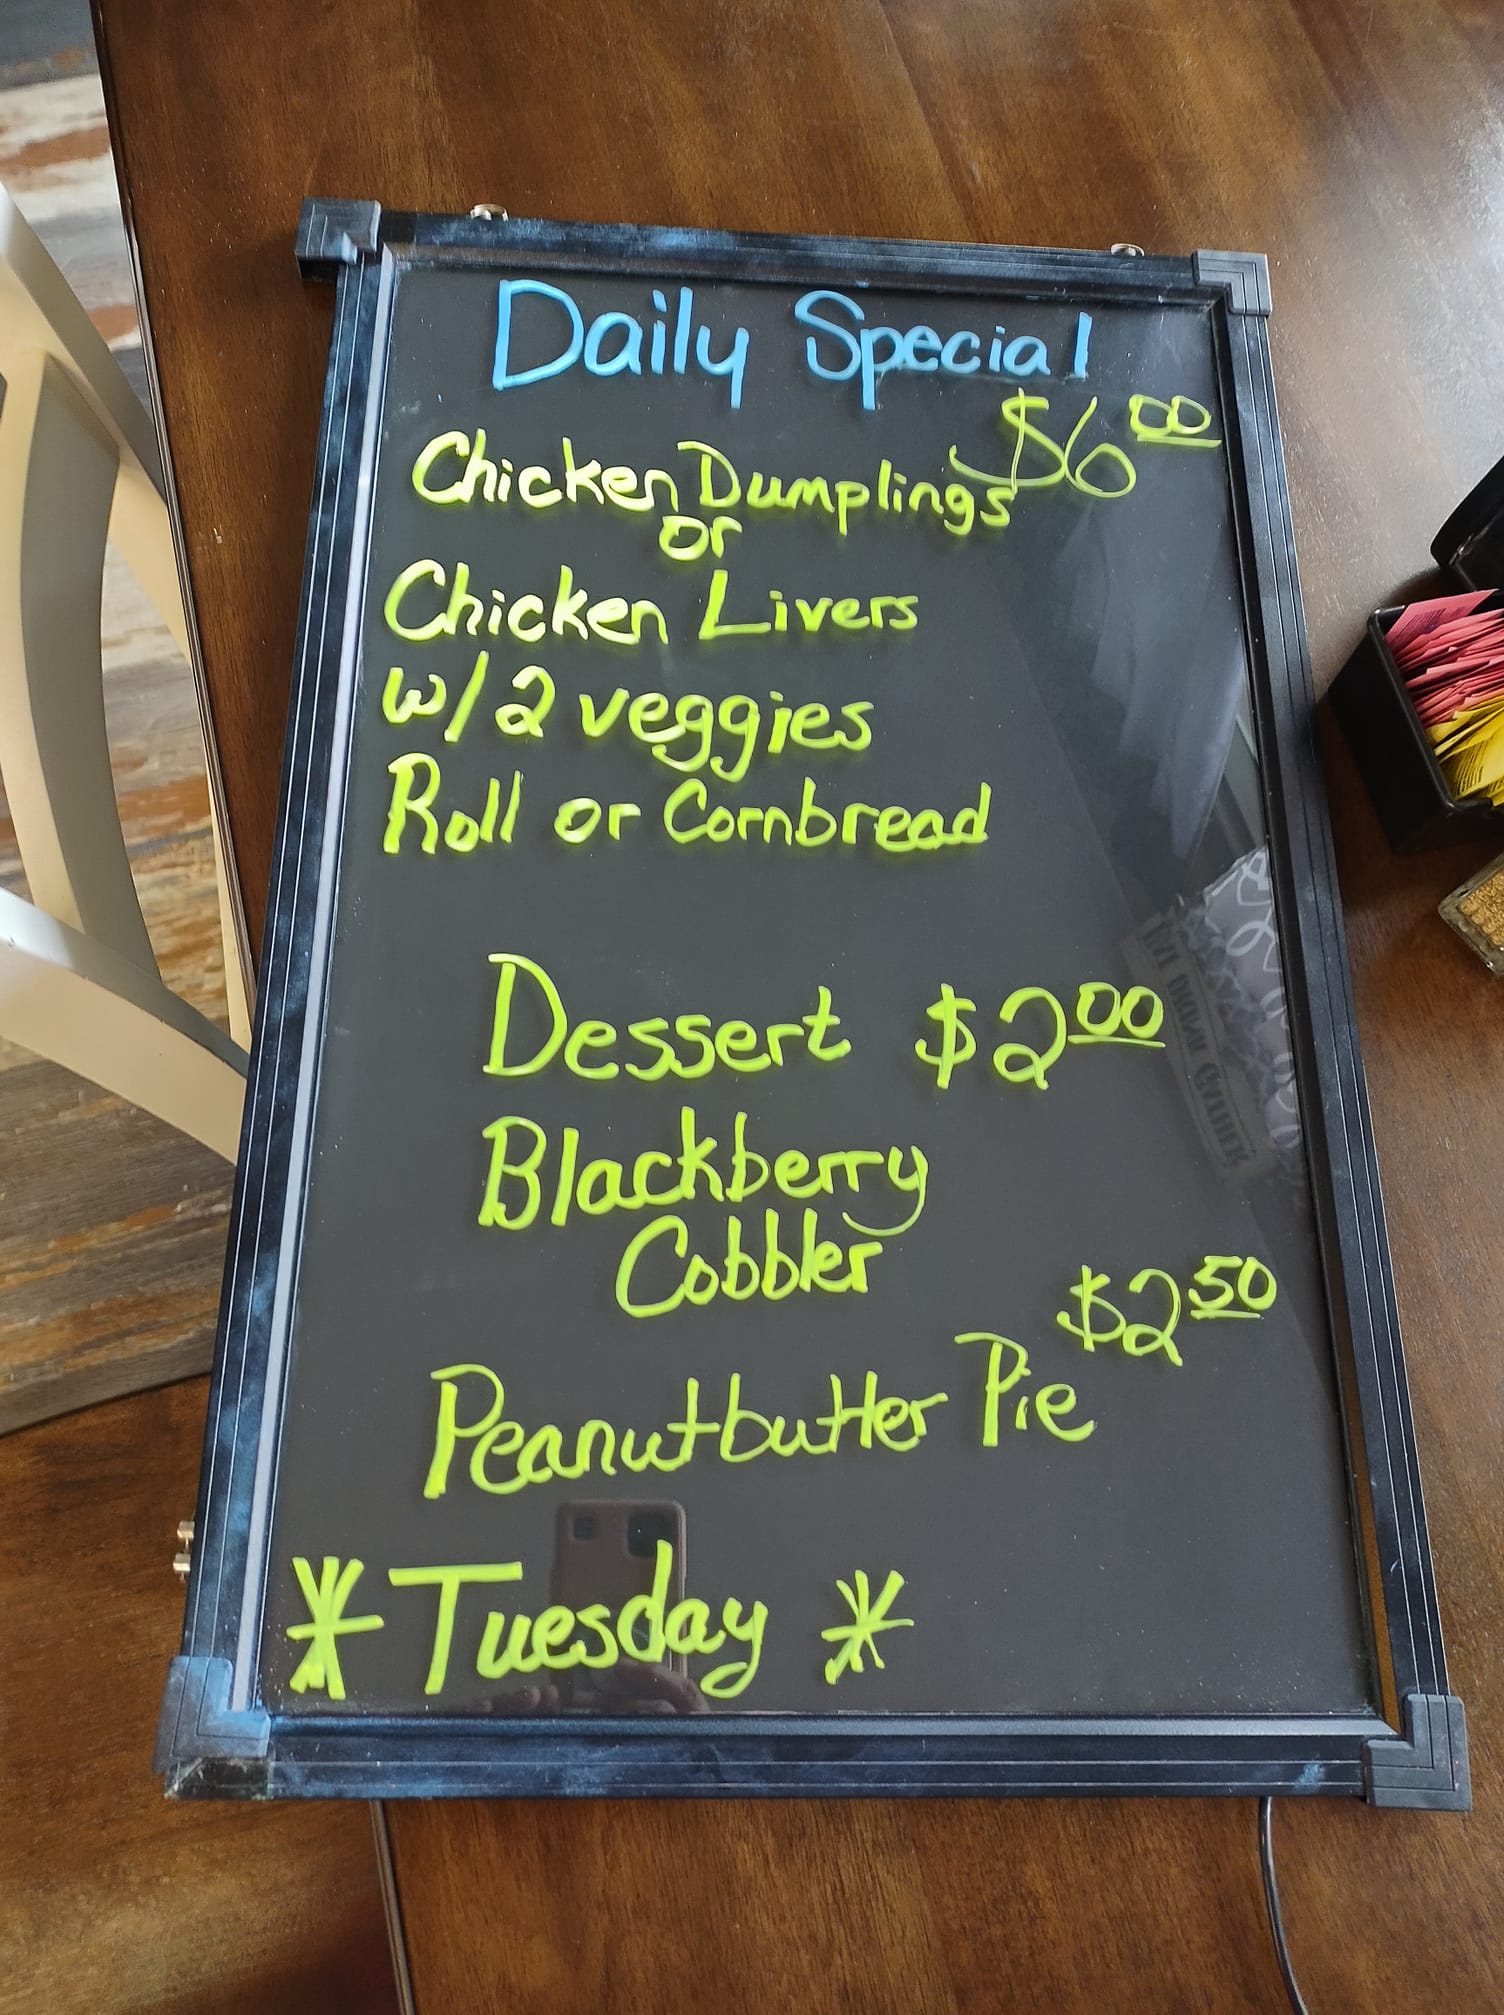 Daily Special
$6.00
Chicken Dumplings
or
Chicken Livers
w/2 veggies
Roll or Cornbread
Dessert $2.00
Blackberry
Cobbler
$2.50
Peanutbutter Pie
* Tuesday *